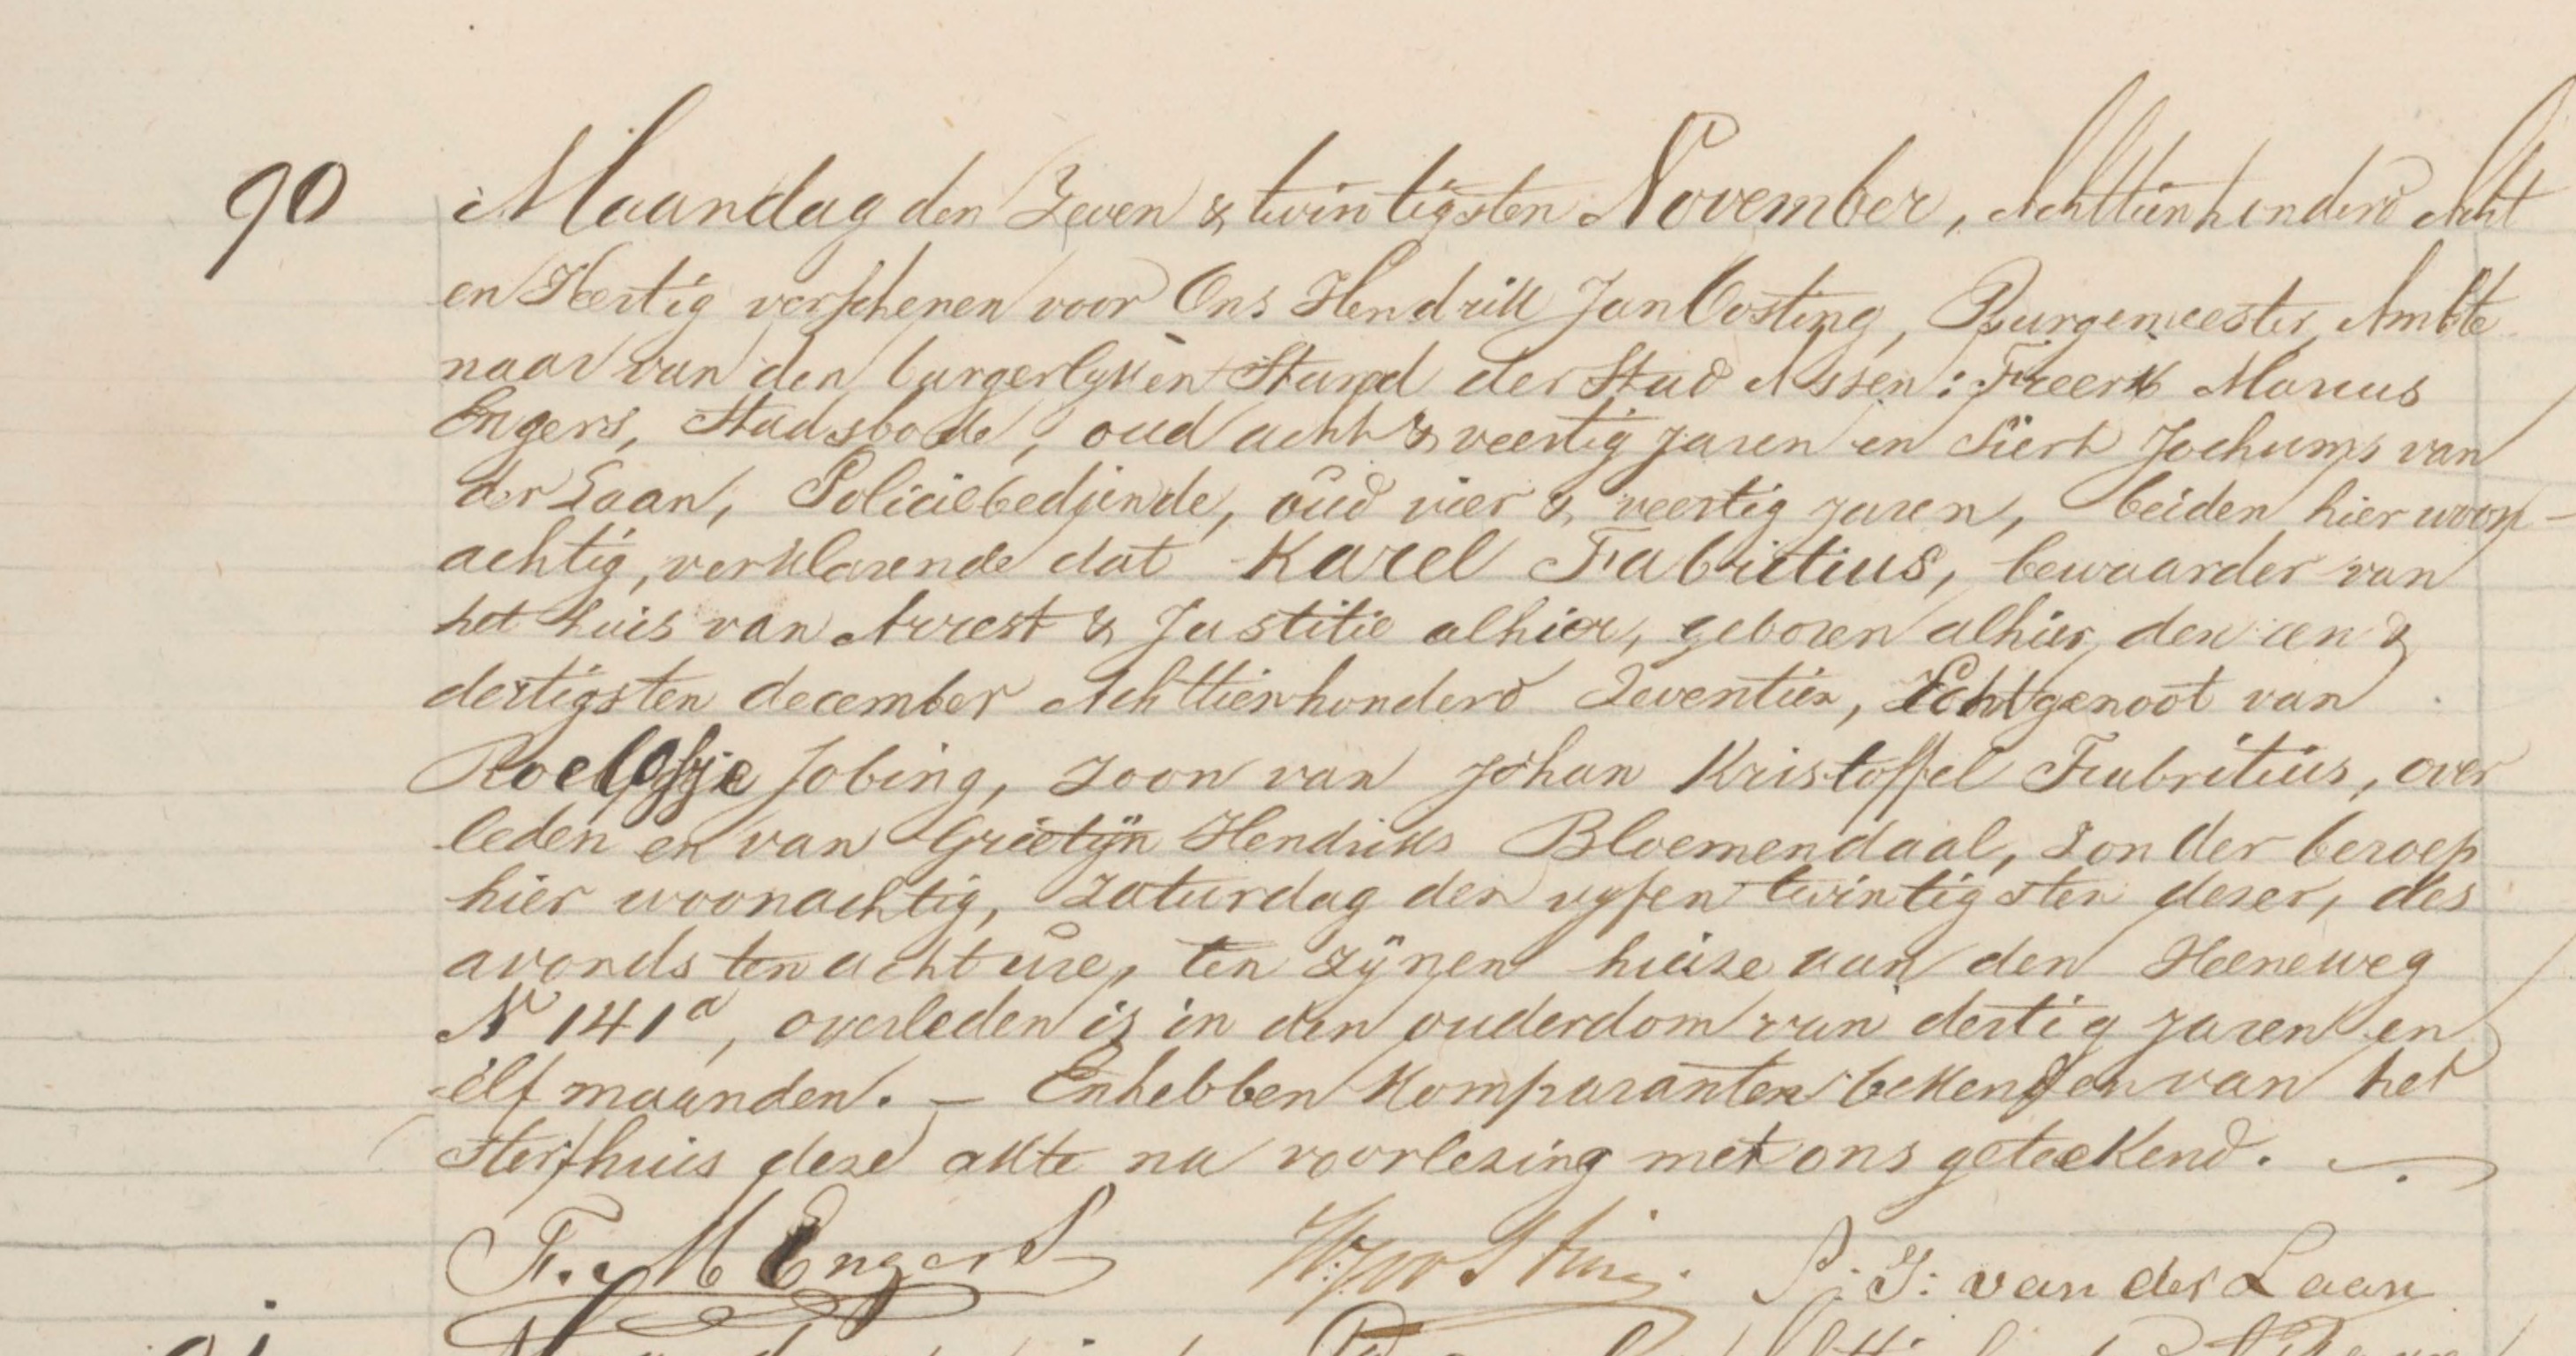 90
Maandag den Zeven & twintigsten November, Achttienhonderd Acht
en Veertig verschenen voor Ons Hendrik Jan Oosting, Burgemeester Ambte
naar van den burgerlyken Stand der Stad Assen: Freerk Marius
Engers, Stadsbode, oud acht & veertig jaren en Siert Jochums van
der Laan, Policiebediende, oud vier & veertig jaren, beiden hier woon-
achtig, verklarende dat Karel Fabritius, bewaarder van
het huis van Arrest & Justitie alhier, geboren alhier, den een &
dertigsten december Achttienhonderd Zeventien, Echtgenoot van
Roelofje Jobing, zoon van Johan Kristoffel Fabritius, over
leden en van Grietijn Hendriks Bloemendaal, zonder beroep
hier woonachtig, Zaturdag den vyf en twintigsten dezer, des
avonds ten acht ure, ten zijnen huize aan den Heeneweg
N 141a, overleden is in den ouderdom van dertig jaren en
elf maanden. — En hebben Komparanten bekenden van het
sterfhuis deze akte na voorlezing met ons geteekend.
F. M Engers HJOosting. S: J: van der Laan
91